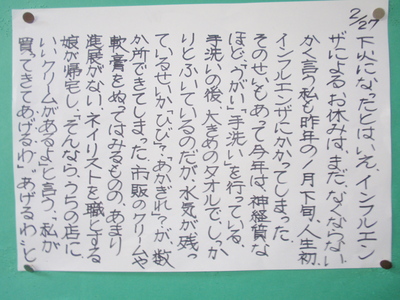 2/27
下火になったとはいえ、インフルエン
ザによるお休みは、まだ、なくならない
かく言う私も昨年の1月下旬、人生初
インフルエンザにかかってしまった。
そのせいもあって今年は、神経質な
ほど「うがい」「手洗い」を行っている。
手洗いの後、大きめのタオルで、しっか
りとふいているのだが、水気が残っ
ているせいか「ひび?」「あかぎれ?」が数
か所できてしまった。市販のクリームや
軟膏をぬってはみるものの、あまり
進展がない。ネイリストを職とする
娘が帰宅し、「そんなら、うちの店に
いいクリームがあるよ」と言う。私が
買ってきてあげるわ」"あげるわ"と